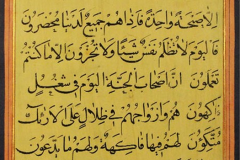 الا صيحة واحدة فاذا هم جميع لدينا محضرون
فاليوم لا تظلم نفس شيئا ولا تجزون الا ما كنتم
تعملون ان اصحاب الجنة اليوم في شغل
فاكهون هم وازواجهم في ظلال على الارائك
متكئون لهم فيها فاكهة ولهم ما يدعون